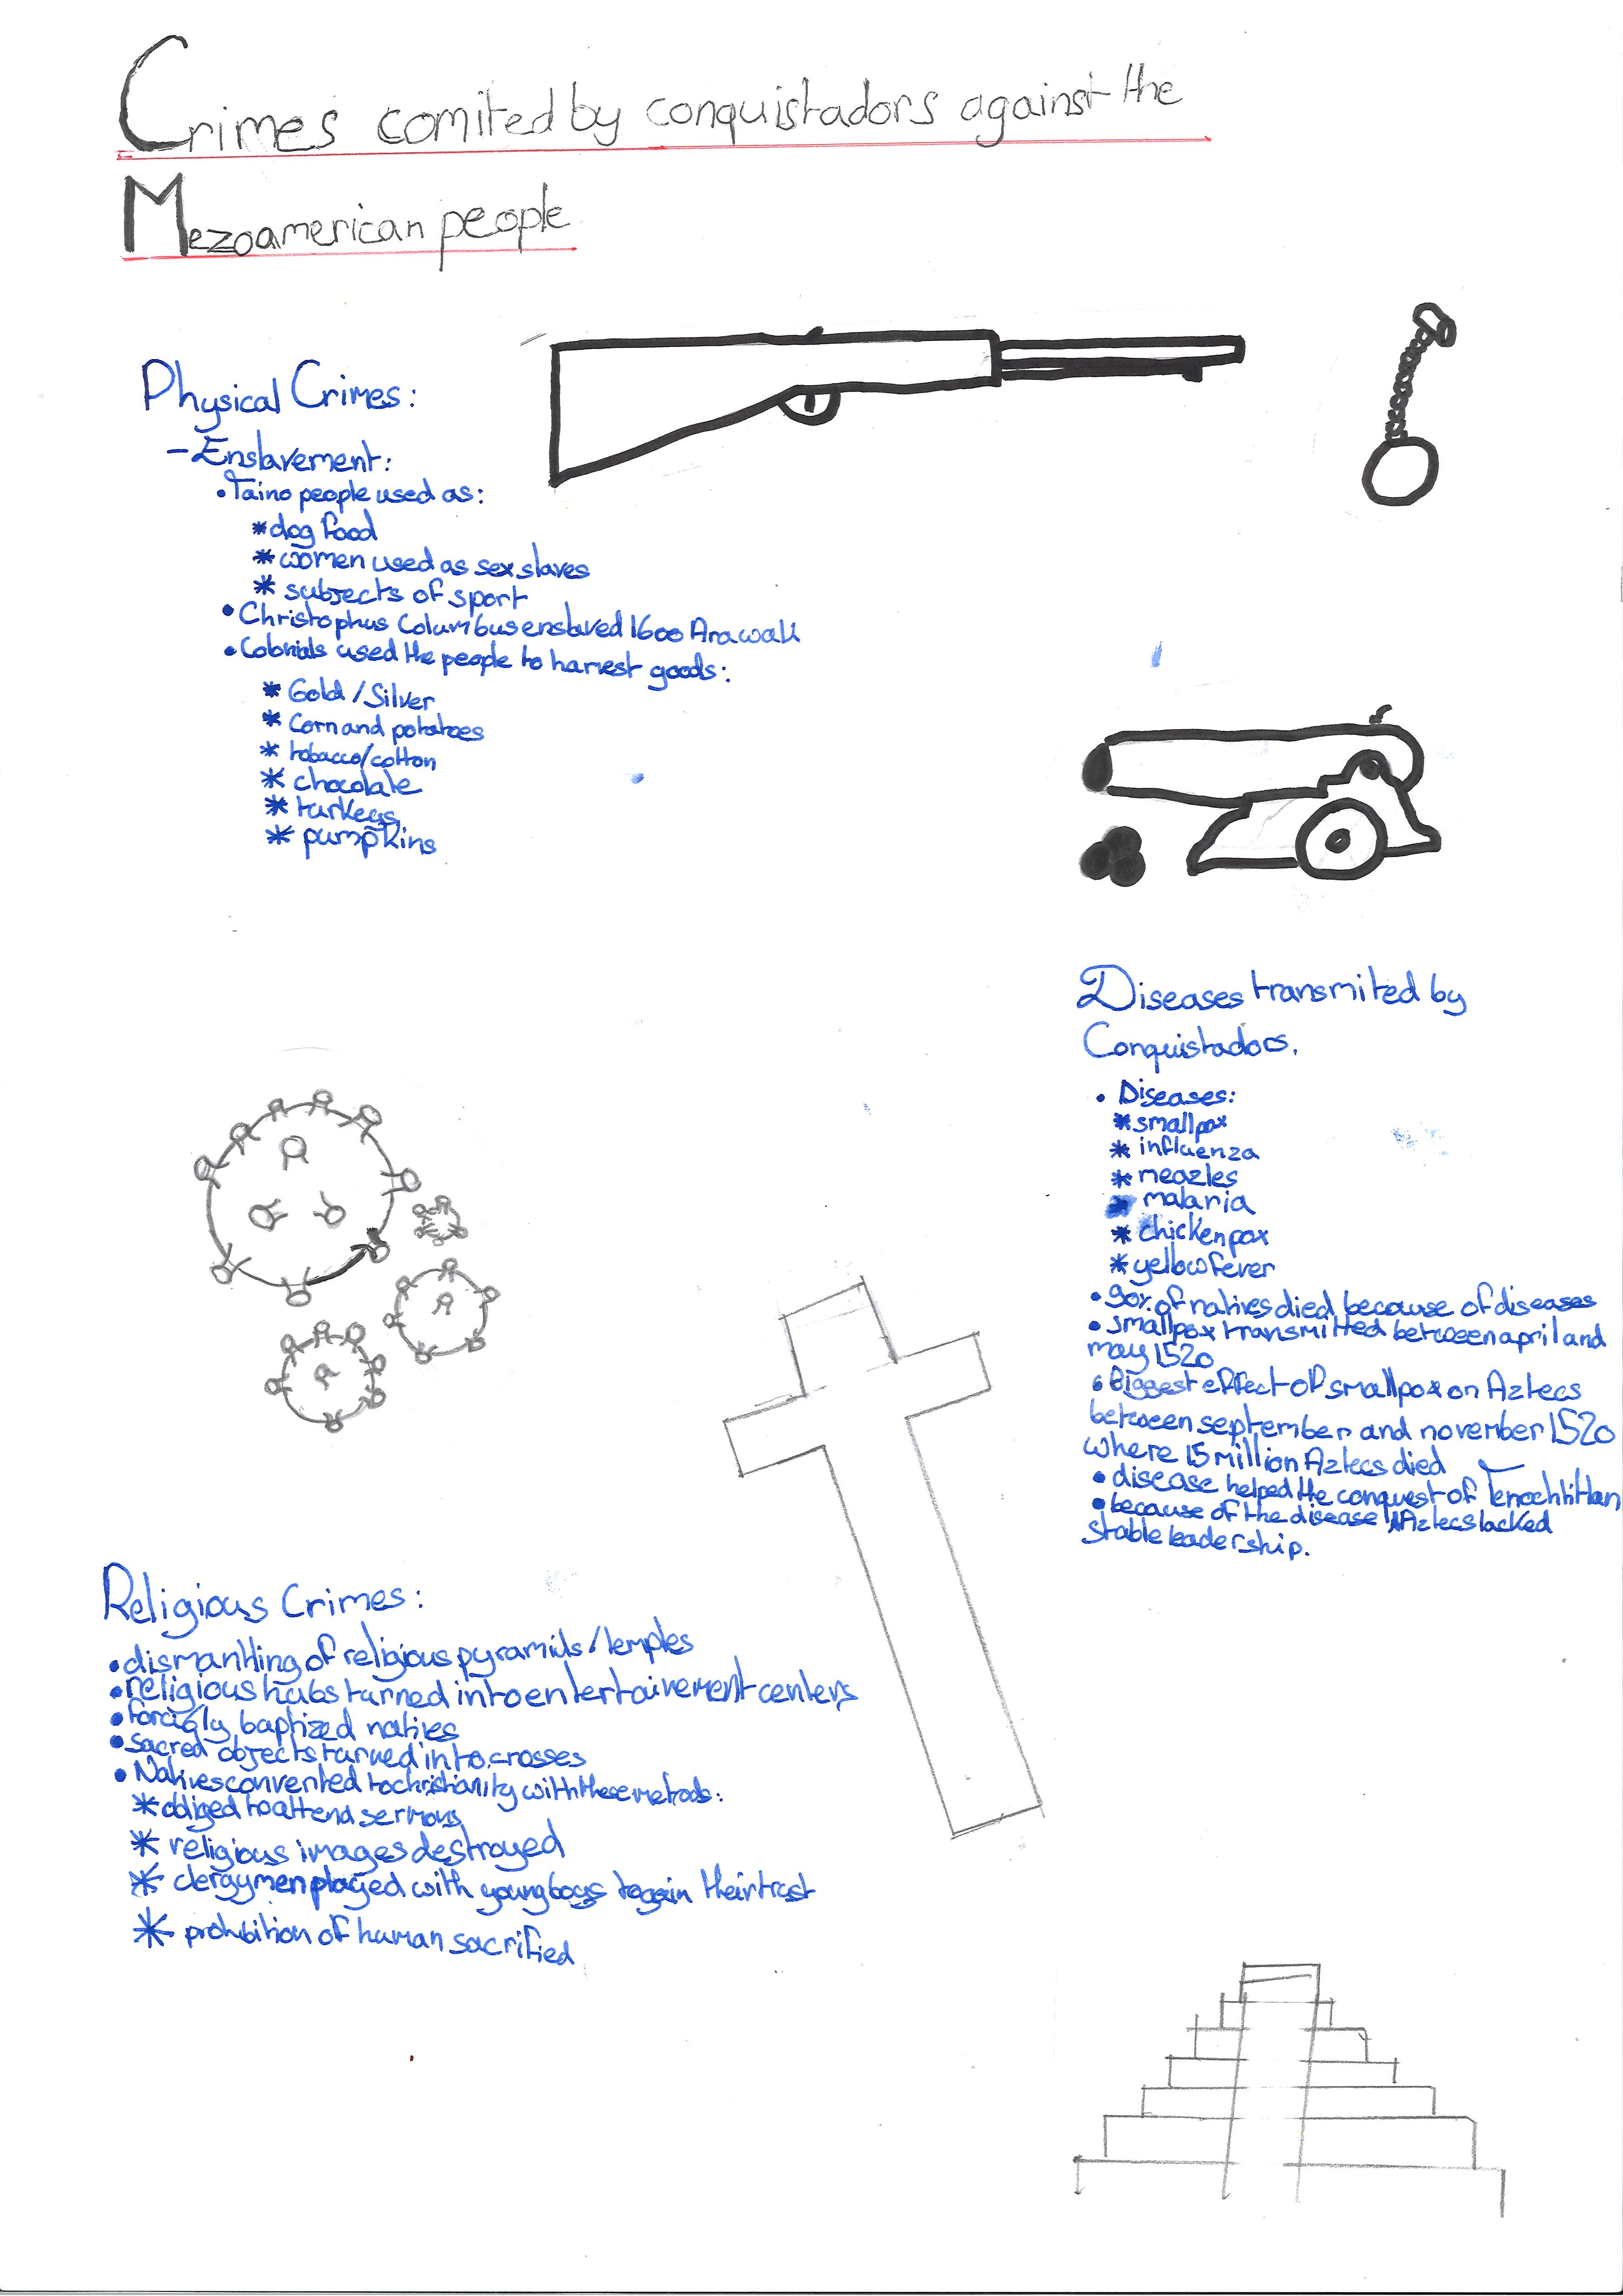 Crimes comited by conquistadors against the
Mezoamerican people
Physical Crimes:
- Enslavement:
• Taino people used as:
* dog food
* women used as sex slaves
* subjects of sport
• Christophus Columbus enslaved 1600 Arawak
• Colonials used the people to harvest goods:
* Gold / Silver
* Corn and potatoes
* tobacco/cotton
* chocolate
* turkeys
* pumpkins
Diseases transmited by
Conquistadors.
• Diseases:
* smallpox
* influenza
* meazles
* malaria
* chickenpox
* yellow fever
• 90% of natives died because of diseases
• smallpox transmitted between april and
may 1520
• Biggest effect of smallpox on Aztecs
between september and november 1520
where 15 million Aztecs died
• disease helped the conquest of Tenochtitlan
• because of the disease Aztecs lacked
stable leadership.
Religious Crimes:
• dismantling of religious pyramids / temples
• religious hubs turned into entertainement centers
• forcigly baptized natives
• sacred objects turned into crosses
• Natives convented to christianity with these metods:
* obliged to attend sermons
* religious images destroyed
* clergymen played with young boys to gain their trust
* prohibition of human sacrified